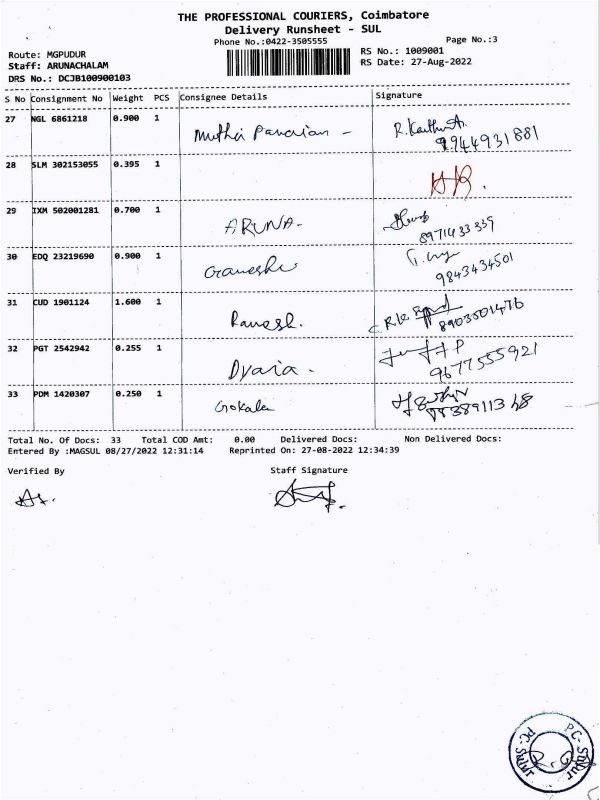 THE PROFESSIONAL COURIERS, Coimbatore
Delivery Runsheet - SUL
Phone No.:0422-3505555 Page No.:3
Route: MGPUDUR RS No.: 1009001
Staff: ARUNACHALAM RS Date: 27-Aug-2022
DRS No.: DCJB100900103
S No Consignment No Weight PCS Consignee Details Signature
27 NGL 6861218 0.900 1 9944931881
28 SLM 302153055 0.395 1
29 IXM 502001281 0.700 1 ARUNA- 8971433339
30 EDQ 23219690 0.900 1 Ganesh 9843434501
31 CUD 1901124 1.600 1 Ramesh. 8903501476
32 PGT 2542942 0.255 1 9677555921
33 PDM 1420307 0.250 1 Gokala
Total No. Of Docs: 33 Total COD Amt: 0.00 Delivered Docs: Non Delivered Docs:
Entered By :MAGSUL 08/27/2022 12:31:14 Reprinted On: 27-08-2022 12:34:39
Verified By Staff Signature
PC-Sulur
PC-Sulur